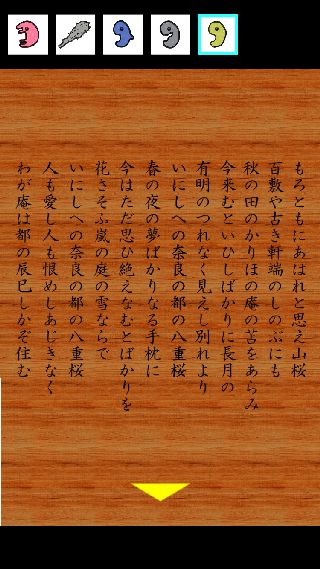 もろともにあはれと思え山桜
百敷や古き軒端のしのぶにも
秋の田のかりほの庵の苫をあらみ
今来むといひしばかりに長月の
有明のつれなく見えし別れより
いにしへの奈良の都の八重桜
春の夜の夢ばかりなる手枕に
今はただ思ひ絶えなむとばかりを
花さそふ嵐の庭の雪ならで
いにしへの奈良の都の八重桜
人も愛し人も恨めしあじきなく
わが庵は都の辰巳しかぞ住む